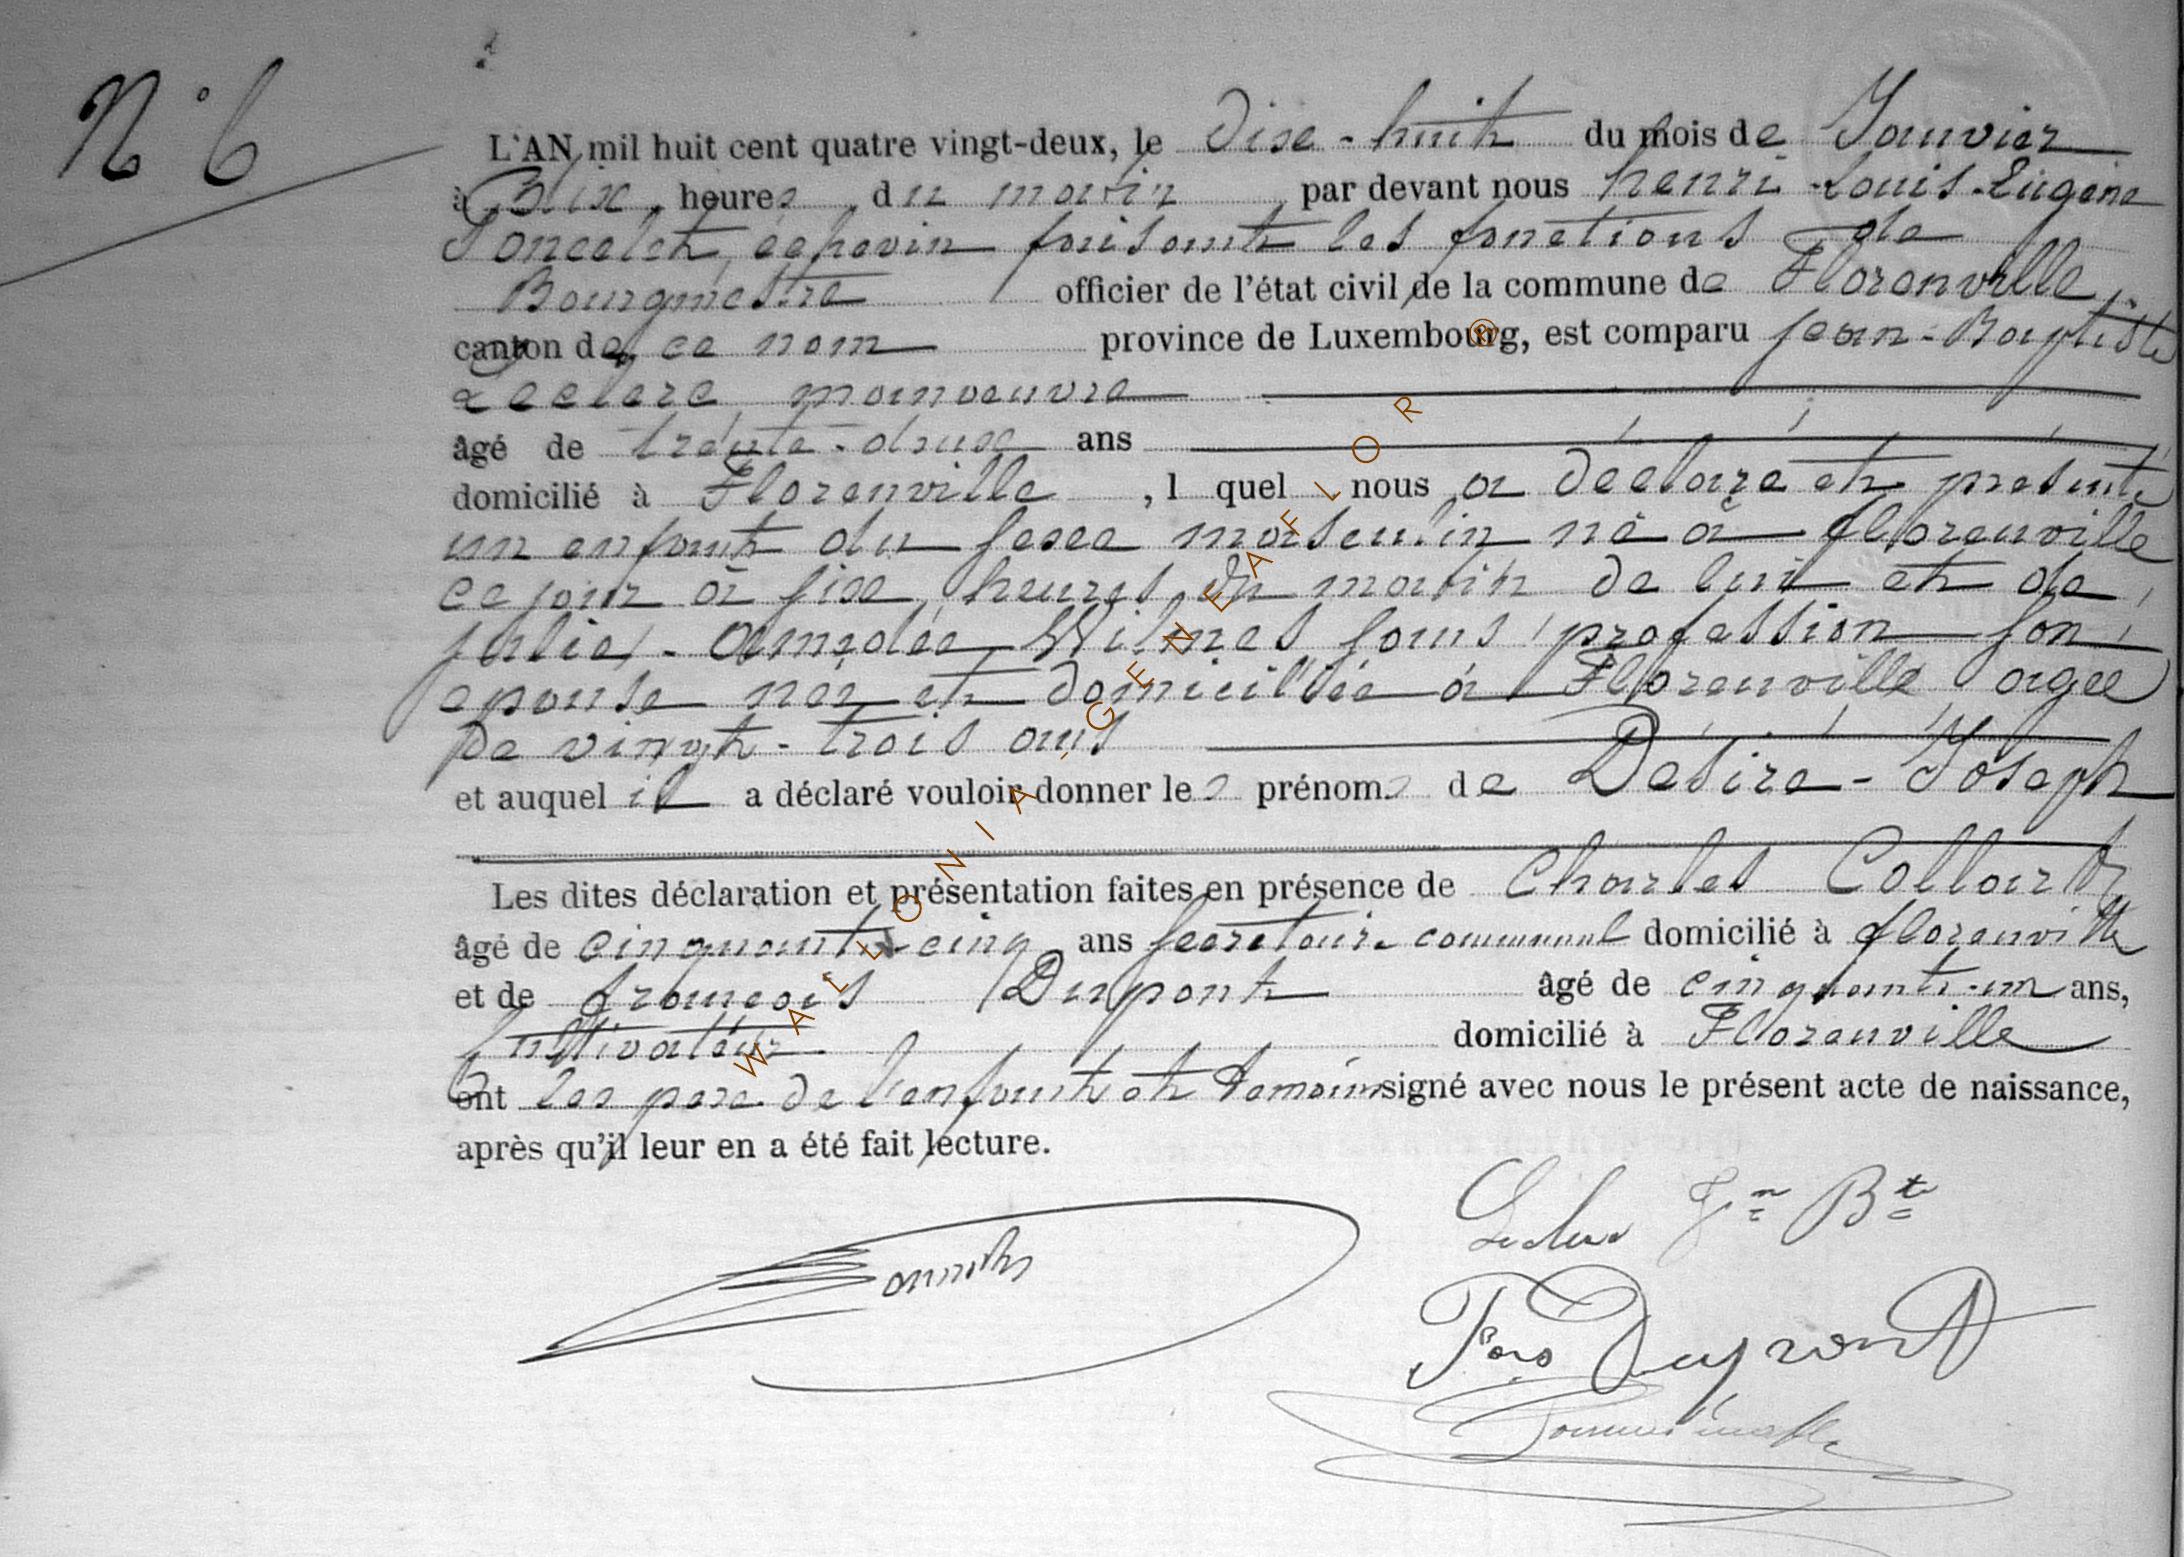 N° 6
L'AN mil huit cent quatre vingt-deux, le Dixe-huit du mois de Janvier
à Dix heures du matin par devant nous henri-Louis-Eugène
Poncelet, échevin faisant les fonctions de
Bourgmestre officier de l'état civil de la commune de Florenville
canton de ce nom province de Luxembourg, est comparu jean-Baptiste
Leclere manoeuvre
âgé de trente-deux ans
domicilié à Florenville, l quel nous a déclaré et présenté
un enfant du sexe masculin né à florenville
ce jour à six heures du matin de lui et de
julie-Amidée Wilmes sans profession son
epouse née et domiciliée à Florenville agee
De vingt-trois ans
et auquel il a déclaré vouloir donner les prénoms de Désiré-Joseph
Les dites déclaration et présentation faites en présence de Charles Collart
âgé de cinquante-cinq ans secretaire communal domicilié à florenville
et de françois Dupont âgé de cinquante-un ans,
Cultivateur domicilié à Florenville
ont les pere de l'enfant et temoins signé avec nous le présent acte de naissance,
après qu'il leur en a été fait lecture.
Leclere Jn Bte
Dupont
WALLONIA-GENEAFLOR ®